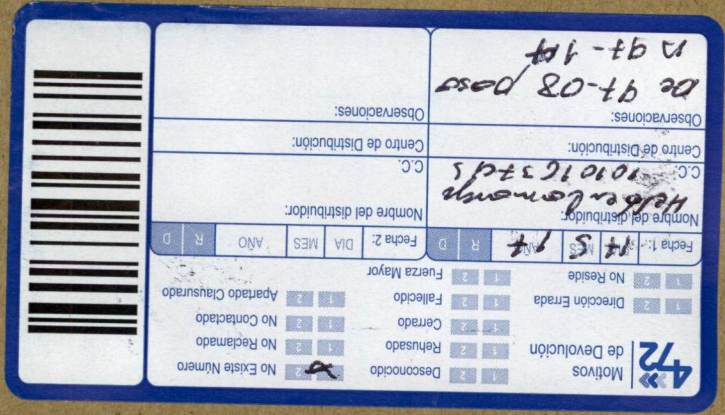 472
Motivos
de Devolución
1 2 Desconocido
1 2 Rehusado
1 2 Cerrado
1 2 Fallecido
1 2 Fuerza Mayor
1 2 No Existe Número
1 2 No Reclamado
1 2 No Contactado
1 2 Apartado Clausurado
1 2 Dirección Errada
1 2 No Reside
Fecha 1: 17 5 17 R D
Nombre del distribuidor:
C.C.
Centro de Distribución:
Observaciones:
De 97-08 paso
Fecha 2: DIA MES AÑO R D
Nombre del distribuidor:
C.C.
Centro de Distribución:
Observaciones: